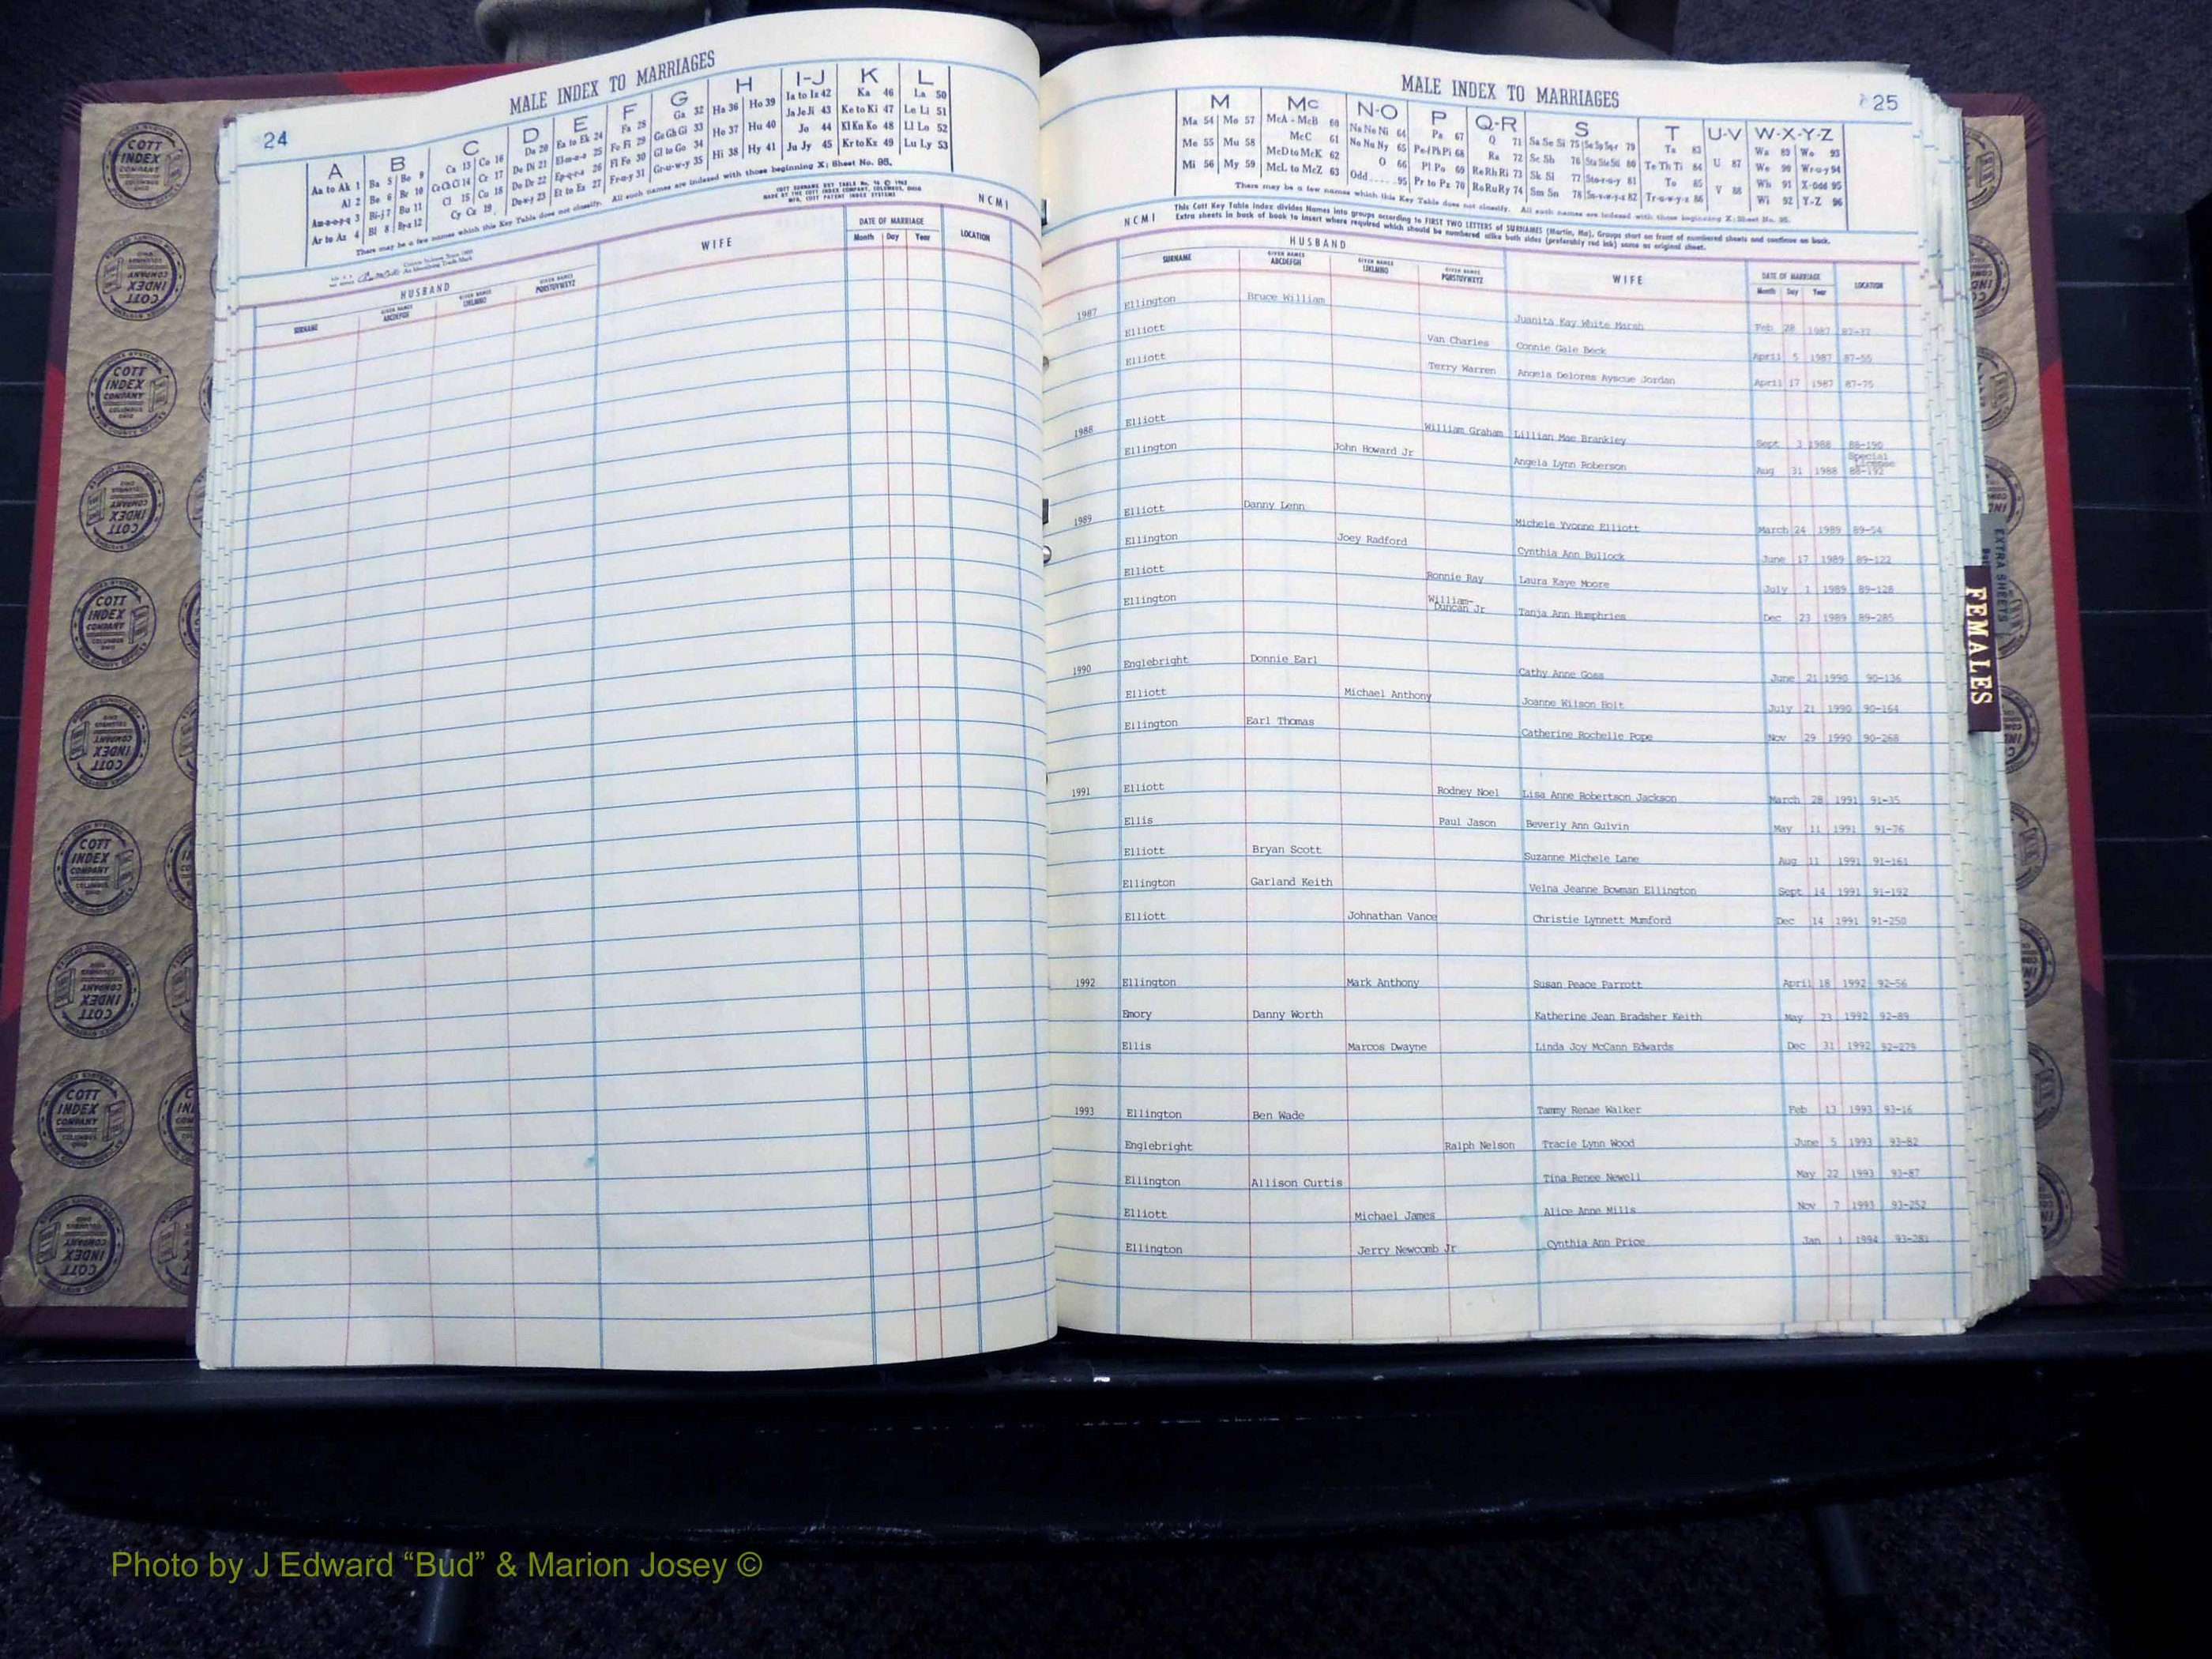 24
MALE INDEX TO MARRIAGES
A B C D E F G H I-J K L
Aa to Ak 1 Ba 5 Be 9 Ca 13 Co 16 Da 20 Ea to Ek 24 Fa 28 Ga 32 Ha 36 Ho 39 Ia to Iz 42 Ka 46 La 50
Al 2 Be 6 Br 10 Ce Ch Ci 14 Cr 17 De Di 21 El-m-n-o 25 Fe Fi 29 Ge Gh Gi 33 He 37 Hu 40 Ja Je Ji 43 Ke to Ki 47 Le Li 51
Am-n-o-p-q 3 Bi-j 7 Bu 11 Cl 15 Cu 18 Do Dr 22 Ep-q-r-s 26 Fl Fo 30 Gl to Go 34 Hi 38 Hy 41 Jo 44 Kl Kn Ko 48 Ll Lo 52
Ar to Az 4 Bl 8 By-z 12 Cy Cz 19 Du-w-y 23 Et to Ez 27 Fr-u-y 31 Gr-u-w-y 35 Ju Jy 45 Kr to Kz 49 Lu Ly 53
There may be a few names which this Key Table does not classify. All such names are indexed with those beginning X; Sheet No. 95.
NCMI
HUSBAND WIFE DATE OF MARRIAGE LOCATION
SURNAME GIVEN NAMES ABCDEFGH GIVEN NAMES IJKLMNO GIVEN NAMES PQRSTUVWXYZ Month Day Year
MALE INDEX TO MARRIAGES
25
M Mc N-O P Q-R S T U-V W-X-Y-Z
Ma 54 Mo 57 McA - McB 60 Na Ne Ni 64 Pa 67 Q 71 Sa Se Si 75 Sa Sp Sq-r 79 Ta 83 Wa 89 Wo 93
Me 55 Mu 58 McC 61 No Nu Ny 65 Pe-f Ph Pi 68 Ra 72 Sc Sh 76 Sta Ste Sti 80 Te Th Ti 84 U 87 We 90 Wr-u-y 94
Mi 56 My 59 McD to McK 62 O 66 Pl Po 69 Re Rh Ri 73 Sk Sl 77 Sto-r-u-y 81 To 85 Wh 91 X-Odd 95
McL to McZ 63 Odd.....95 Pr to Pz 70 Ro Ru Ry 74 Sm Sn 78 Su-v-w-y-z 82 Tr-u-w-y-z 86 V 88 Wi 92 Y-Z 96
There may be a few names which this Key Table does not classify. All such names are indexed with those beginning X; Sheet No. 95.
This Cott Key Table Index divides Names into groups according to FIRST TWO LETTERS of SURNAMES (Martin, Ma). Groups start on front of numbered sheets and continue on back.
Extra sheets in back of book to insert where required which should be numbered alike both sides (preferably red ink) same as original sheet.
NCMI
HUSBAND WIFE DATE OF MARRIAGE LOCATION
SURNAME GIVEN NAMES ABCDEFGH GIVEN NAMES IJKLMNO GIVEN NAMES PQRSTUVWXYZ Month Day Year
1987 Ellington Bruce William Juanita Kay White Marsh Feb 28 1987 87-37
Elliott Van Charles Connie Gale Beck April 5 1987 87-55
Elliott Terry Warren Angela Delores Ayscue Jordan April 17 1987 87-75
1988 Elliott William Graham Lillian Mae Brankley Sept 3 1988 88-190
Special License
Ellington John Howard Jr Angela Lynn Roberson Aug 31 1988 88-192
1989 Elliott Danny Lenn Michele Yvonne Elliott March 24 1989 89-54
Ellington Joey Radford Cynthia Ann Bullock June 17 1989 89-122
Elliott Ronnie Ray Laura Kaye Moore July 1 1989 89-128
Ellington William-Duncan Jr Tanja Ann Humphries Dec 23 1989 89-285
1990 Englebright Donnie Earl Cathy Anne Goss June 21 1990 90-136
Elliott Michael Anthony Joanne Wilson Holt July 21 1990 90-164
Ellington Earl Thomas Catherine Rochelle Pope Nov 29 1990 90-268
1991 Elliott Rodney Noel Lisa Anne Robertson Jackson March 28 1991 91-35
Ellis Paul Jason Beverly Ann Gulvin May 11 1991 91-76
Elliott Bryan Scott Suzanne Michele Lane Aug 11 1991 91-161
Ellington Garland Keith Velna Jeanne Bowman Ellington Sept 14 1991 91-192
Elliott Johnathan Vance Christie Lynnett Mumford Dec 14 1991 91-250
1992 Ellington Mark Anthony Susan Peace Parrott April 18 1992 92-56
Emory Danny Worth Katherine Jean Bradsher Keith May 23 1992 92-89
Ellis Marcos Dwayne Linda Joy McCann Edwards Dec 31 1992 92-279
1993 Ellington Ben Wade Tammy Renae Walker Feb 13 1993 93-16
Englebright Ralph Nelson Tracie Lynn Wood June 5 1993 93-82
Ellington Allison Curtis Tina Renee Newell May 22 1993 93-87
Elliott Michael James Alice Anne Mills Nov 7 1993 93-252
Ellington Jerry Newcomb Jr Cynthia Ann Price Jan 1 1994 93-283
EXTRA SHEETS
FEMALES
COTT INDEX COMPANY
Photo by J Edward “Bud” & Marion Josey ©